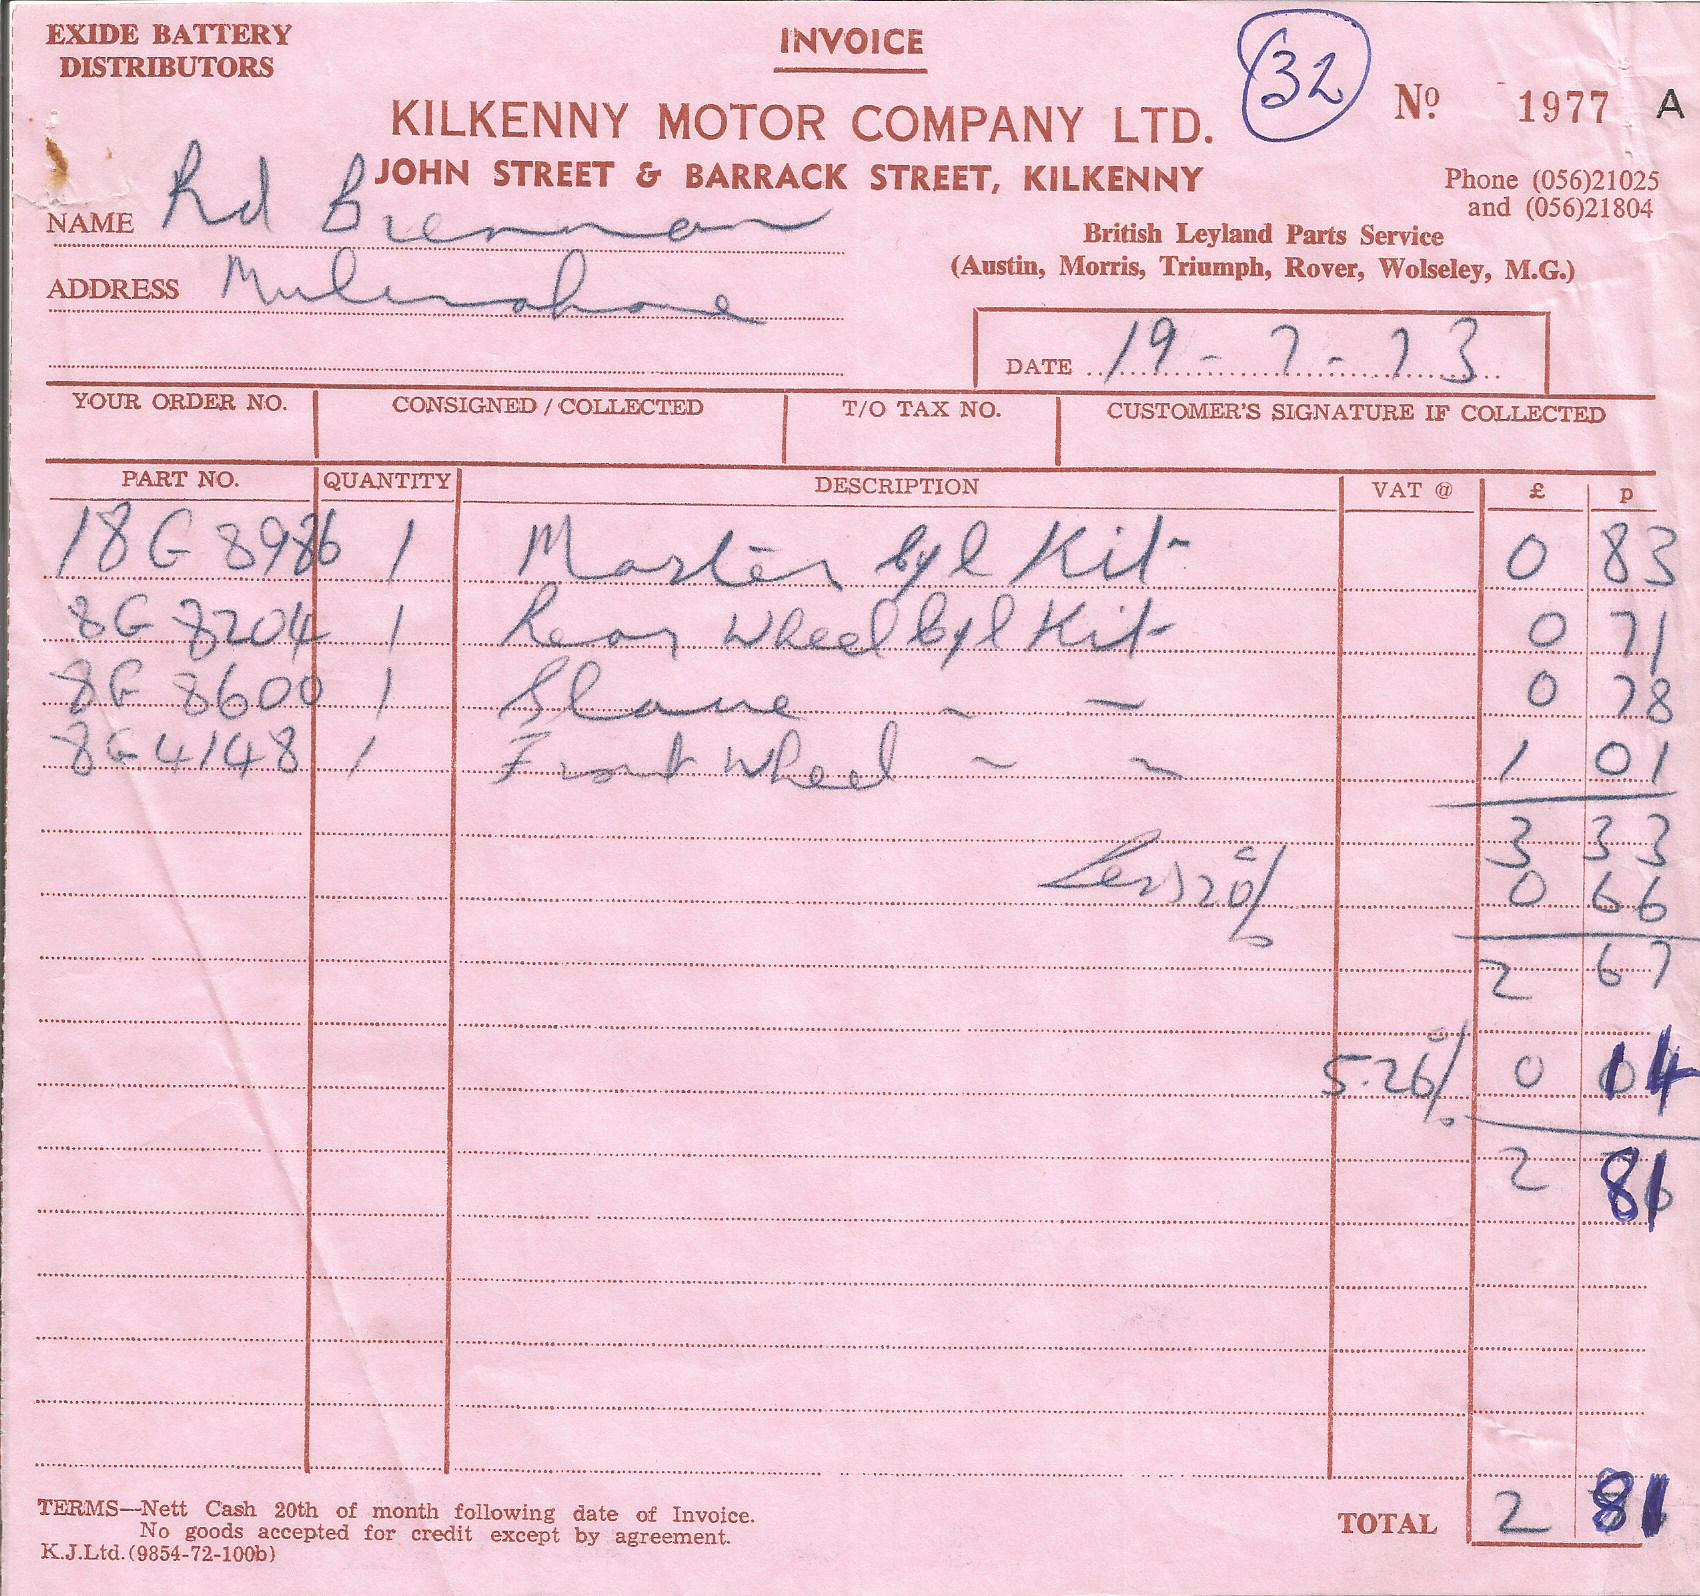 EXIDE BATTERY
DISTRIBUTORS
INVOICE
32
Nº 1977 A
KILKENNY MOTOR COMPANY LTD.
JOHN STREET & BARRACK STREET, KILKENNY
Phone (056)21025
and (056)21804
NAME Rd Brennan
British Leyland Parts Service
(Austin, Morris, Triumph, Rover, Wolseley, M.G.)
ADDRESS Mulinahone
DATE 19-7-73
YOUR ORDER NO. CONSIGNED / COLLECTED T/O TAX NO. CUSTOMER'S SIGNATURE IF COLLECTED
PART NO. QUANTITY DESCRIPTION VAT @ £ p
18G 8986 1 Master Cyl Kit 0 83
8G 8204 1 Rear Wheel Cyl Kit 0 71
8G 8600 1 Slave ~ ~ 0 78
8G 4148 1 Front Wheel ~ ~ 1 01
3 33
Less 20% 0 66
2 67
5.26% 0 14
2 81
TERMS—Nett Cash 20th of month following date of Invoice.
No goods accepted for credit except by agreement.
K.J.Ltd. (9854-72-100b)
TOTAL 2 81